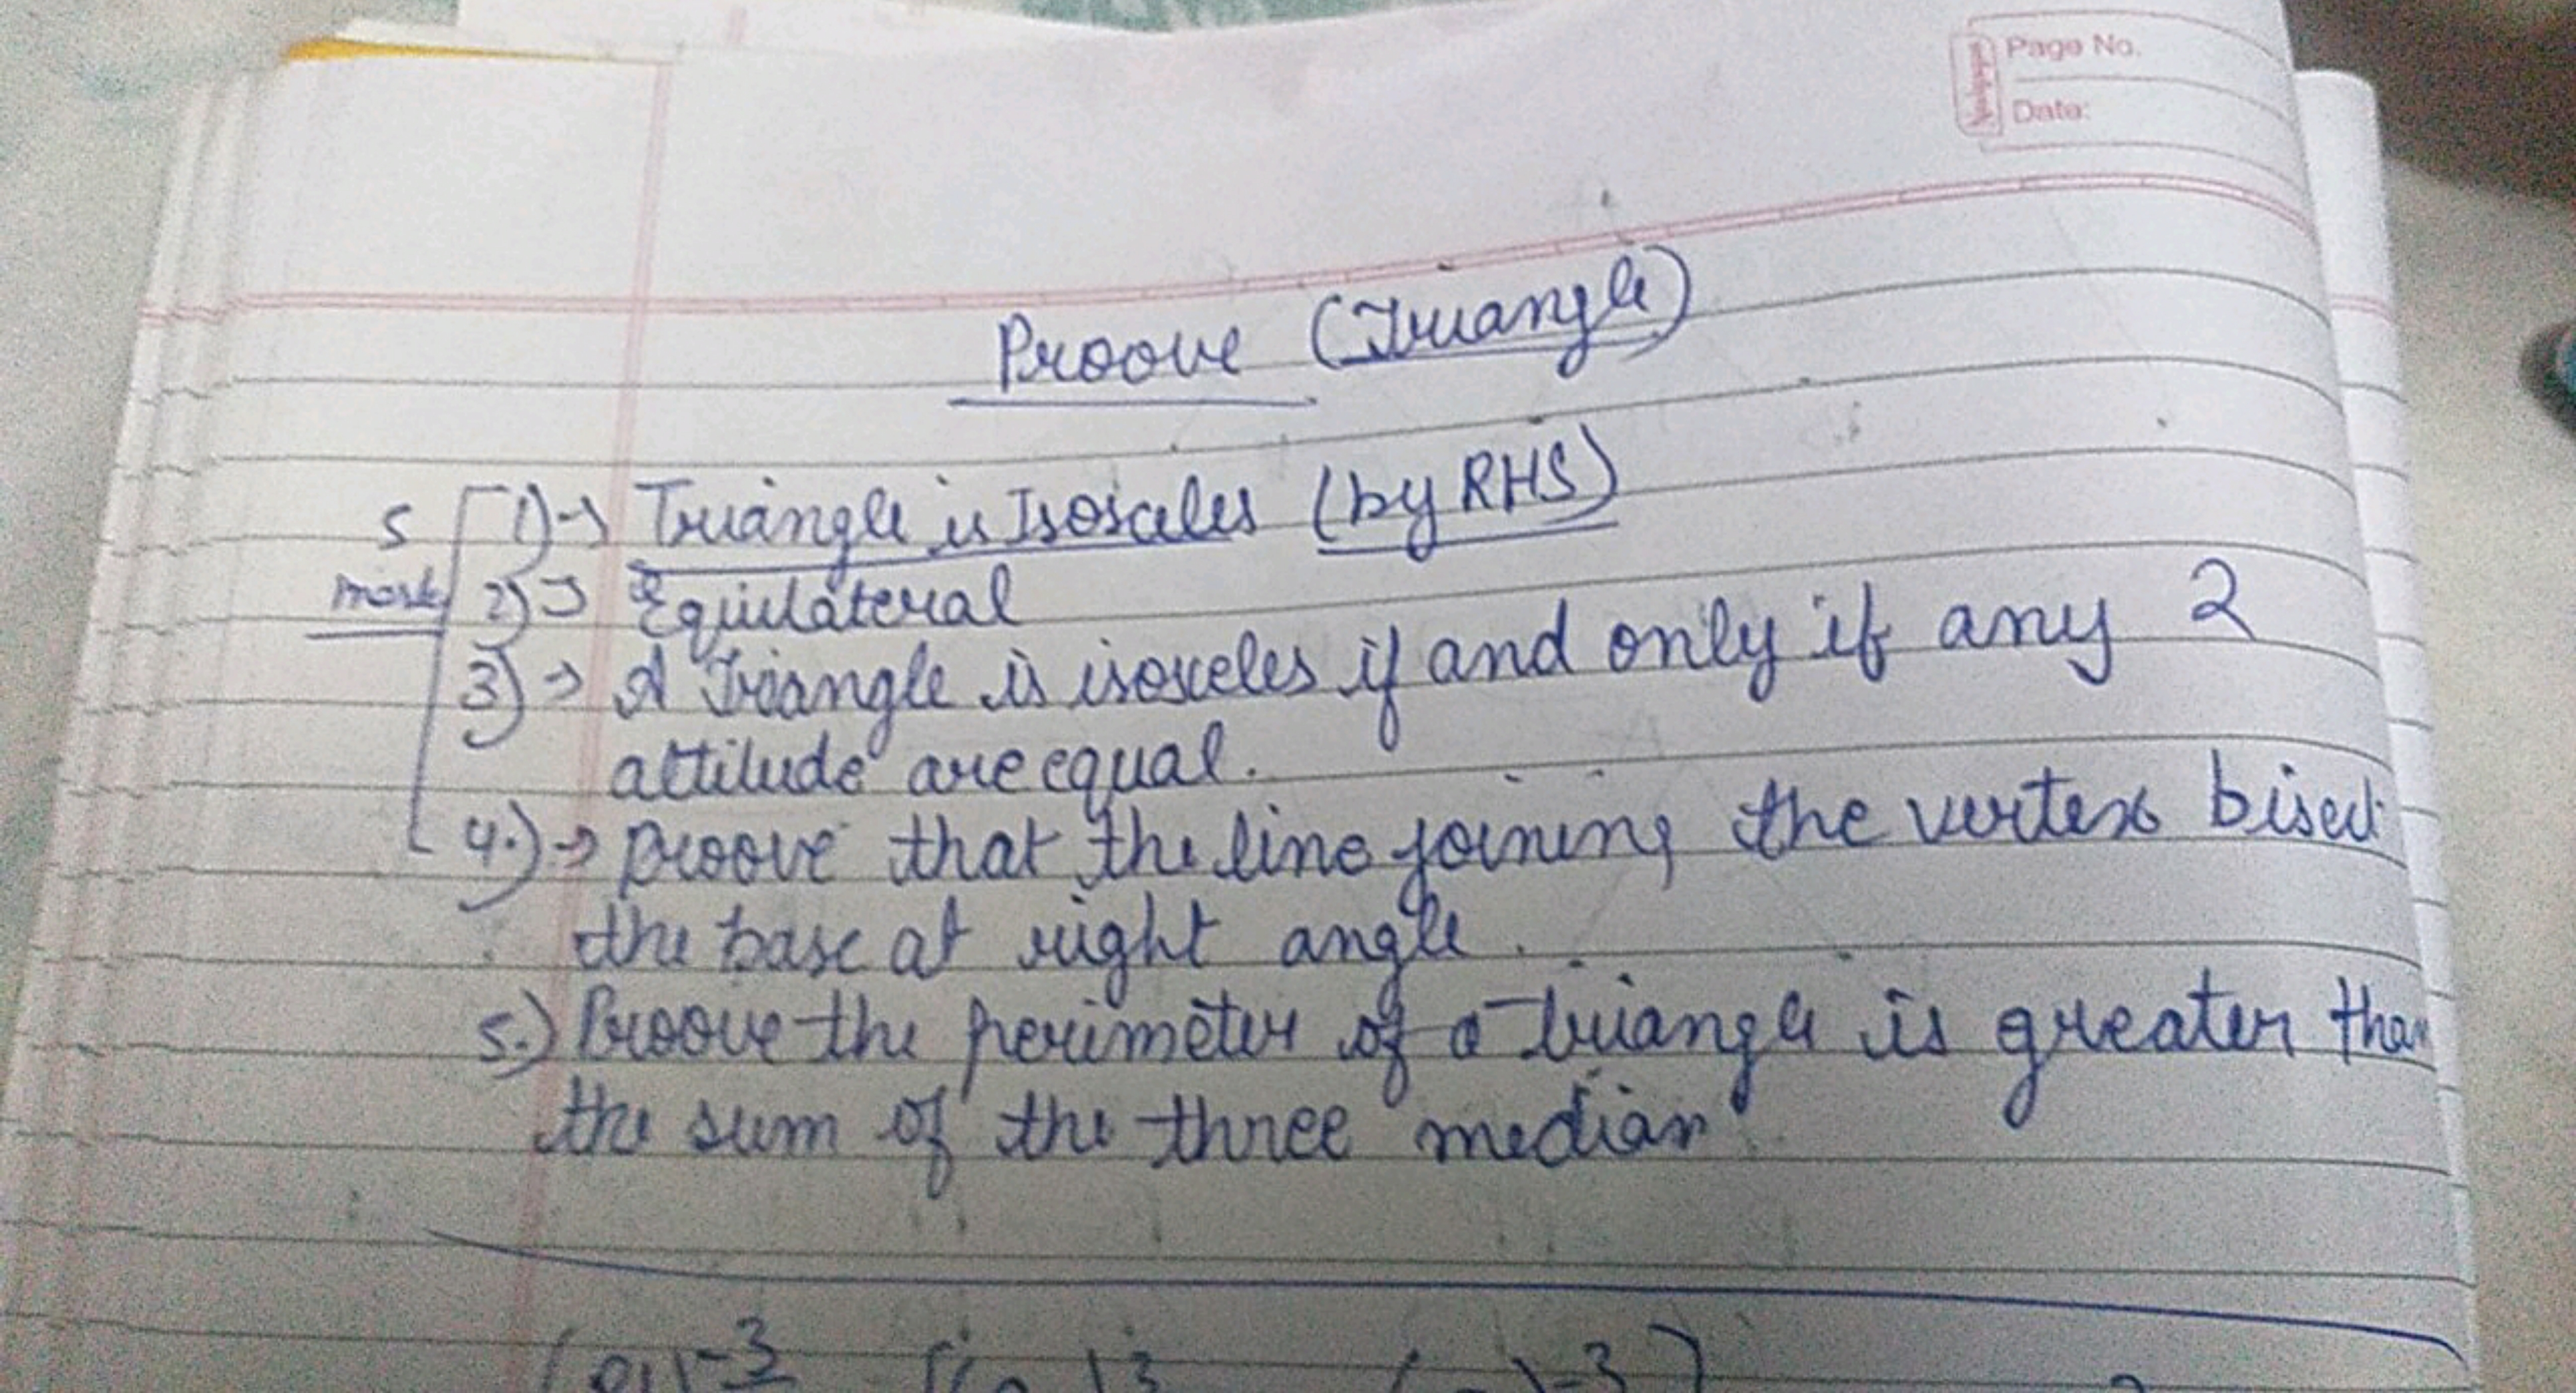 Page No.
Date:
Proove (Triangle)
1) → Triangle is Isosceles (by RHS)
5 mark
2) → Equilateral
3) → A Triangle is isosceles if and only if any 2
attitude are equal.
4.) → proove that the line joining the vertex bisect
the base at right angle.
5.) Proove the perimeter of a triangle is greater than
the sum of the three median